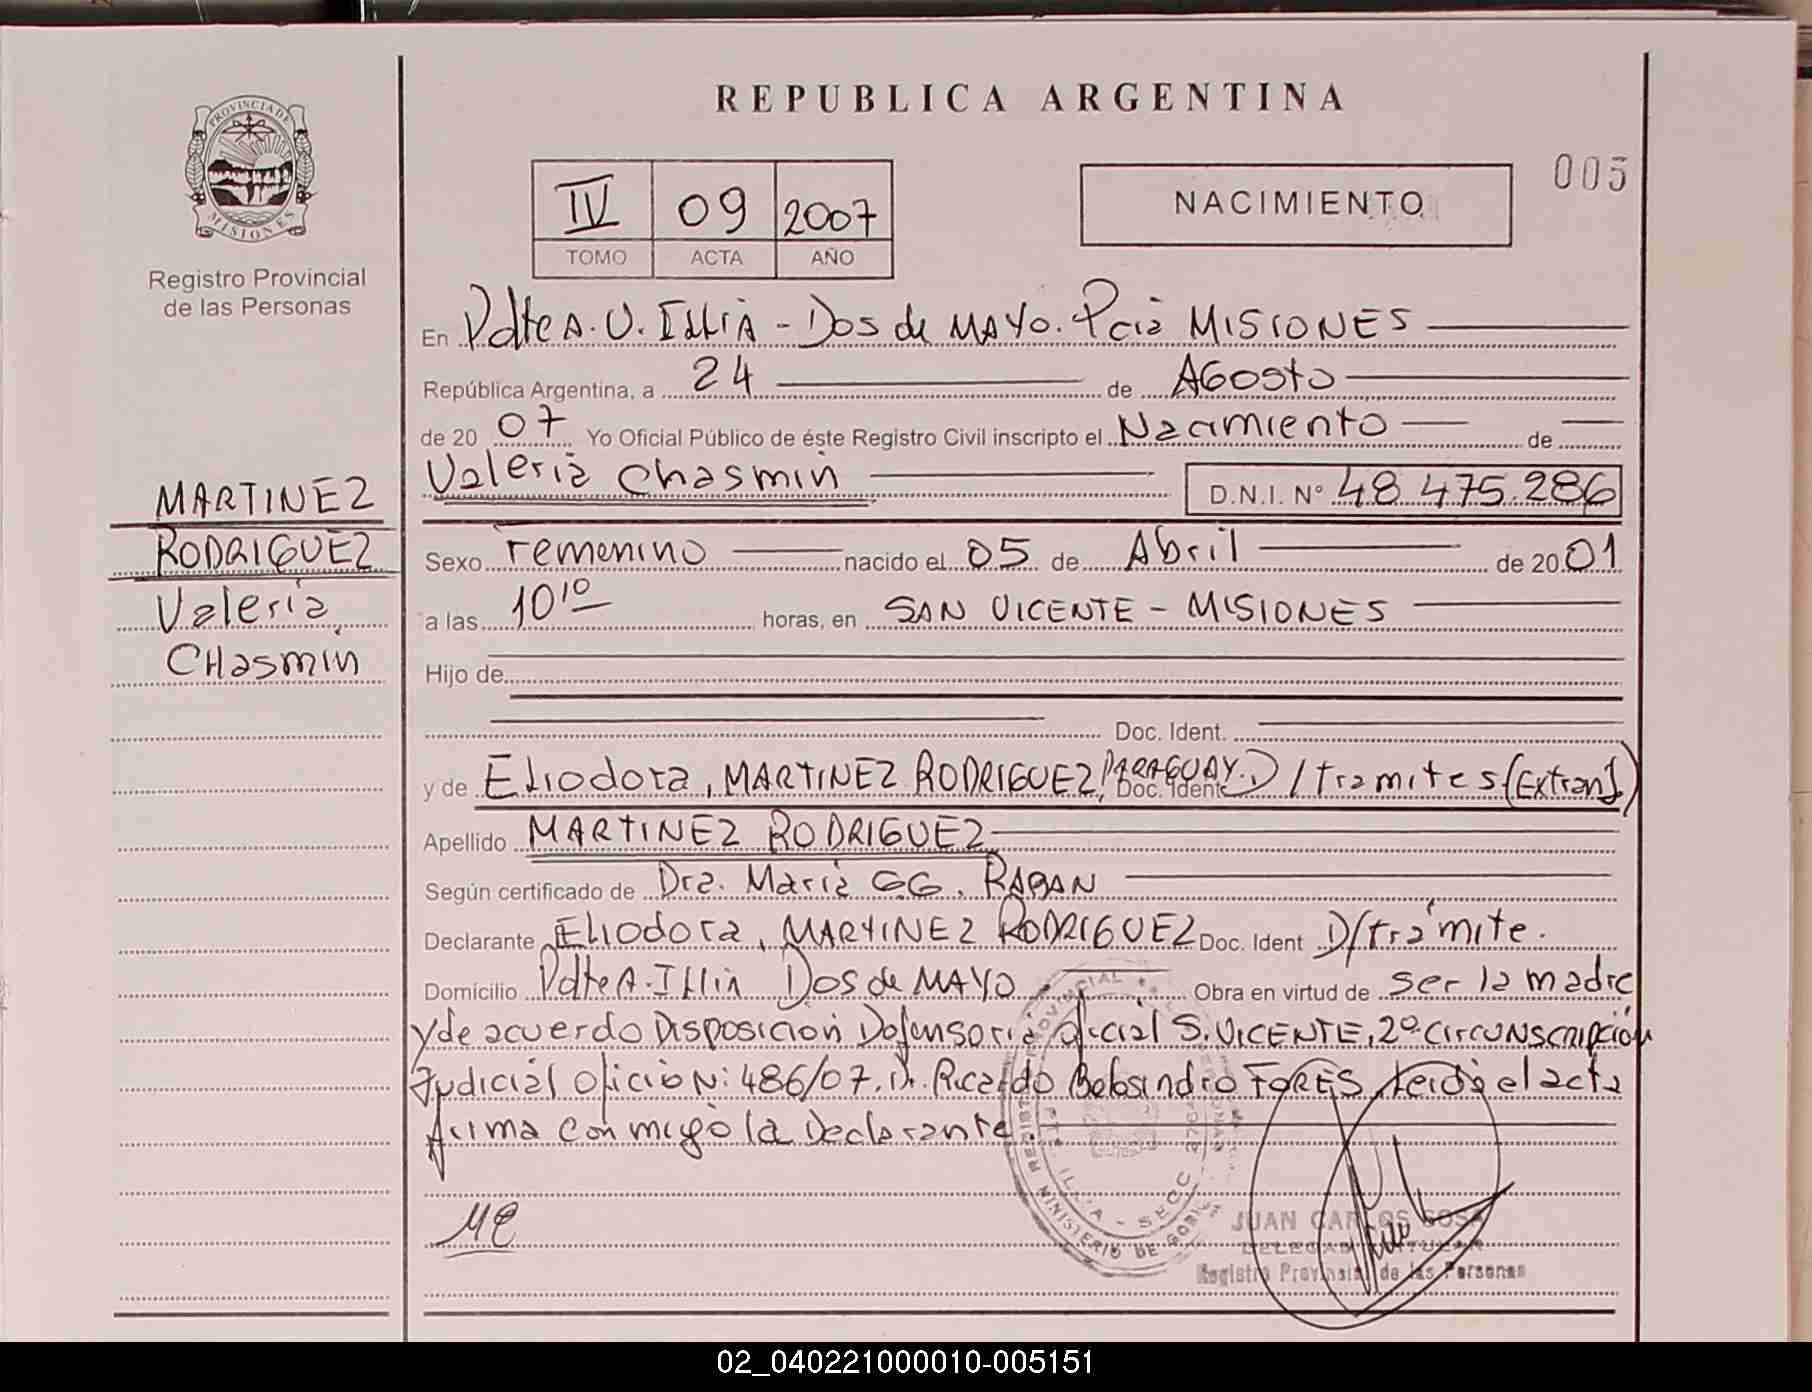 REPUBLICA ARGENTINA
PROVINCIA DE
MISIONES
Registro Provincial
de las Personas
IV 09 2007
TOMO ACTA AÑO
NACIMIENTO
005
En Pdte A. U. Illia - Dos de MAYO. Pcia MISIONES
República Argentina, a 24 de AGOSTO
de 20 07 Yo Oficial Público de éste Registro Civil inscripto el Nacimiento de
Valeria Chasmin D.N.I. Nº 48.475.286
MARTINEZ
RODRIGUEZ
Valeria
CHasmin
Sexo Femenino nacido el 05 de Abril de 20 01
a las 10 10 horas, en SAN VICENTE - MISIONES
Hijo de
Doc. Ident.
y de Eliodora, MARTINEZ RODRIGUEZ, PARAGUAY. Doc. Ident. D/tramites (Extranj)
Apellido MARTINEZ RODRIGUEZ
Según certificado de Dra. Maria RAPAN
Declarante Eliodora, MARTINEZ RODRIGUEZ Doc. Ident D/tramite.
Domicilio Pdte A. Illia Dos de MAYO Obra en virtud de ser la madre
y de acuerdo Disposicion Defensoria oficial S. VICENTE, 2º CIRCUNSCRIPCIÓN
Judicial oficio Nº: 486/07. Dr. Ricardo FORES, leida el acta
firma con migo la Declarante
JUAN CARLOS SOSA
DELEGADO TITULAR
Registro Provincial de las Personas
02_040221000010-005151